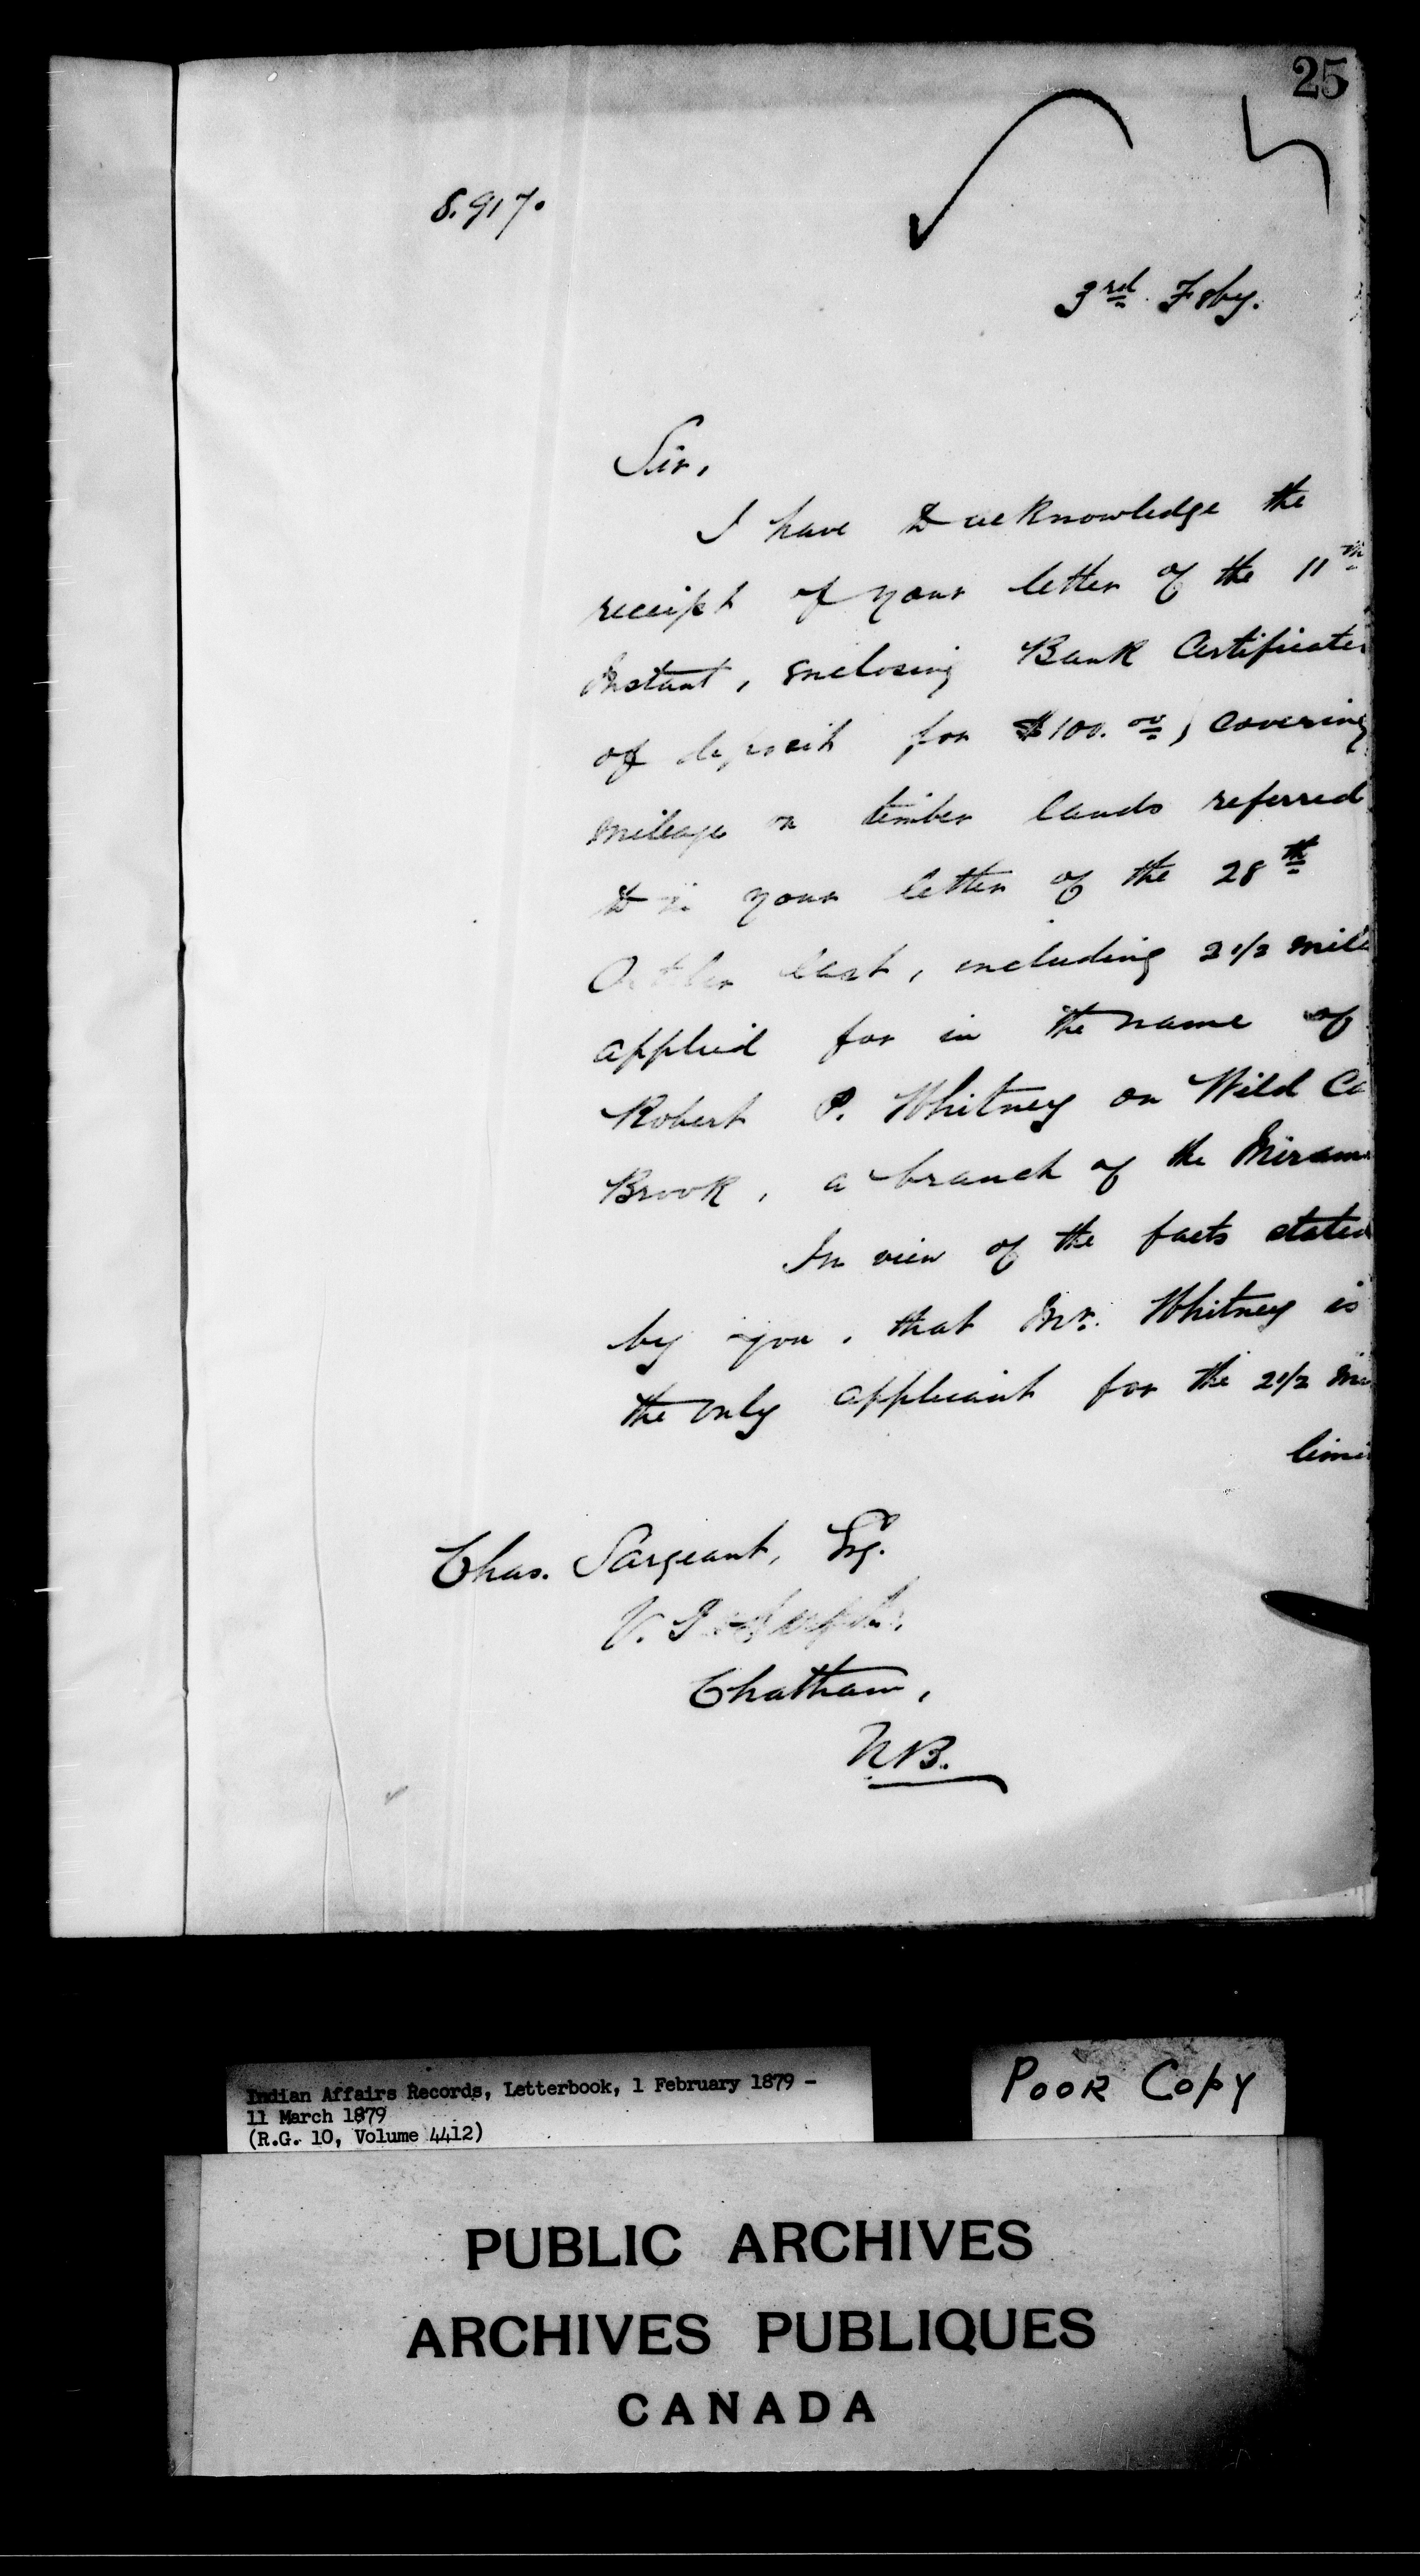 25
8.917.
3rd. Feby.
Sir,
I have to acknowledge the
receipt of your letter of the 11th
Instant, enclosing Bank Certificates
of deposit for $100.00, covering
mileage on timber lands referred
to in your letter of the 28th
October last, including 2 1/2 mile
applied for in the name of
Robert P. Whitney on Wild Ca
Brook, a branch of the Mirami
In view of the facts stated
by you, that Mr. Whitney is
the only applicant for the 2 1/2 mi
limi
Chas. Sargeant, Esq.
Chatham,
N.B.
Indian Affairs Records, Letterbook, 1 February 1879 -
11 March 1879
(R.G. 10, Volume 4412)
POOR COPY
PUBLIC ARCHIVES
ARCHIVES PUBLIQUES
CANADA